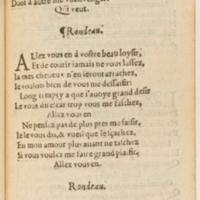 Qui veut.
¶Rondeau.
AVez vous en à vostre beau loysir,
Et de courir iamais ne vous lassez,
Ia mes cheueux n'en seront arrachez,
Ie vouloıs bien de vous me dessaisir:
Long temps y a que i'auoye grand desir
Le vous du car trop vous me faschez,
Allez vous en
Ne pensez pas de plus pres me saisir,
Ie le vous dy, & vueil que le sçachez,
En mon amour plus auant ne taschez
Si vous voulez me faire grand plaisir,
Allez vous en.
Rondeau.